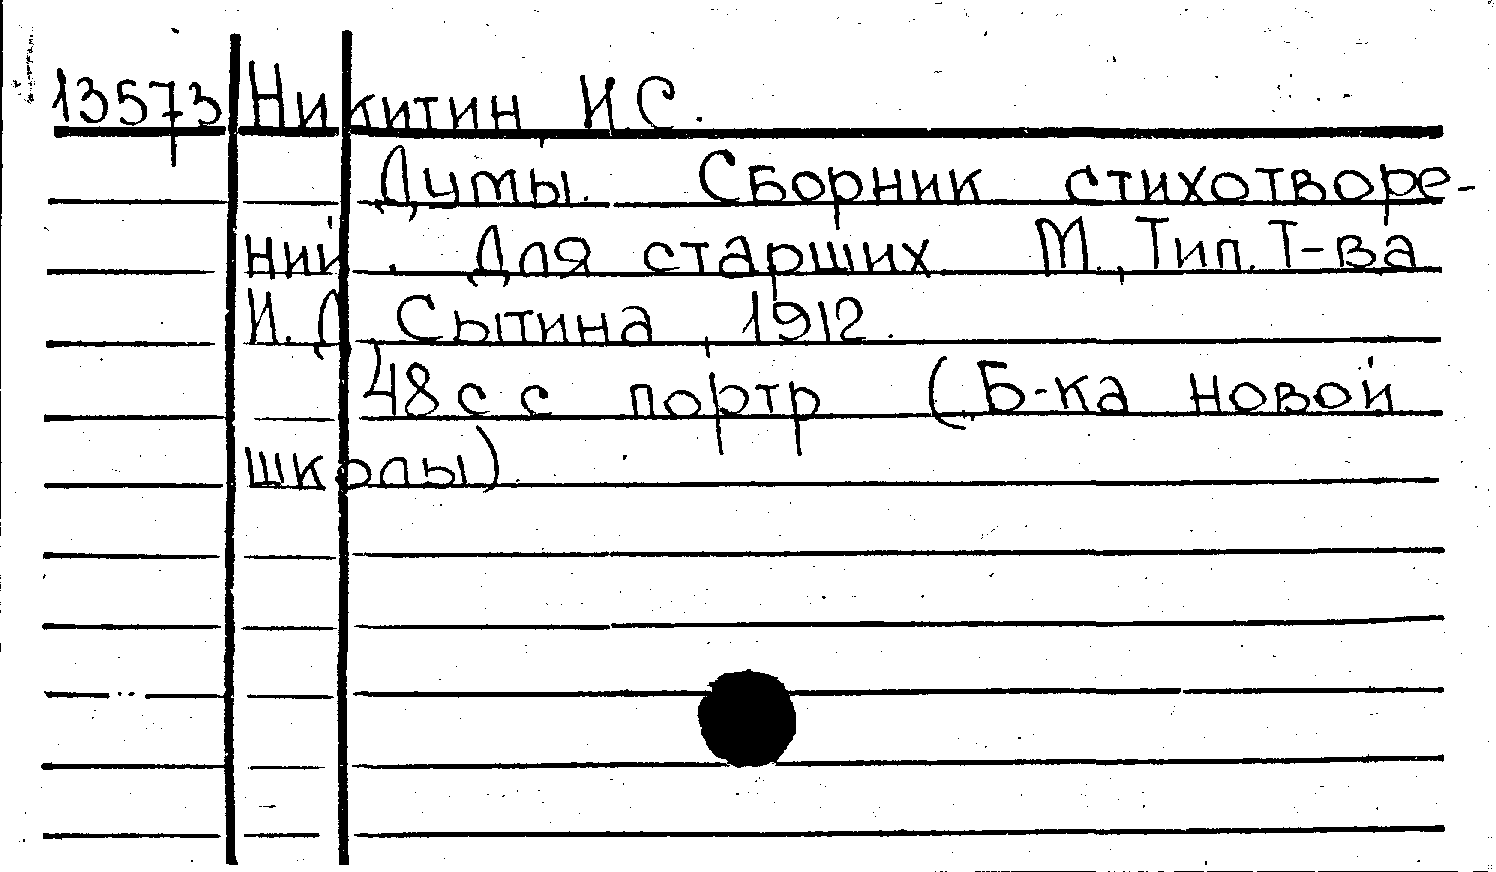 13573 Никитин И.С.
Думы. Сборник стихотворе-
ний. Для старших М., Тип. Т-ва
И.Д. Сытина, 1912.
48 с с портр (Б-ка новой
школы)